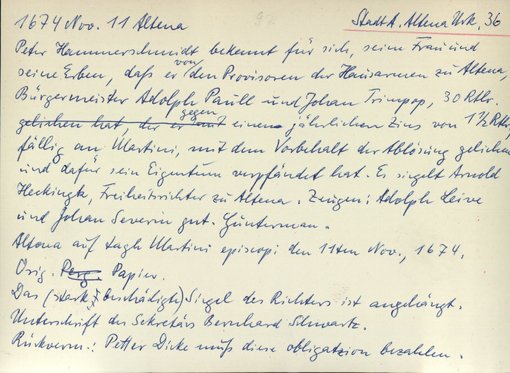 1674 Nov. 11 Altena StadtA. Altena Urk. 36
Peter Hammerschmidt bekennt für sich, seine Frau und
seine Erben, daß er von den Provisoren der Hausarmen zu Altena,
Bürgermeister Adolph Paull und Johan Trimpop, 30 Rtlr.
geliehen hat, der er mit gegen einen jährlichen Zins von 1 1/2 Rtlr,
fällig an Martini, mit dem Vorbehalt der Ablösung geliehen
und dafür sein Eigentum verpfändet hat. Es siegelt Arnold
Heckingk, Freiheitsrichter zu Altena. Zeugen: Adolph Leive
und Johan Severin gnt. Hunterman.
Altena auf tagh Martini episcopi den 11ten Nov., 1674.
Orig. Perg. Papier.
Das (stark beschädigte) Siegel des Richters ist angehängt.
Unterschrift des Sekretärs Bernhard Schwartz.
Rückverm.: Petter Dicke muß diese obligatzion bezahlen.